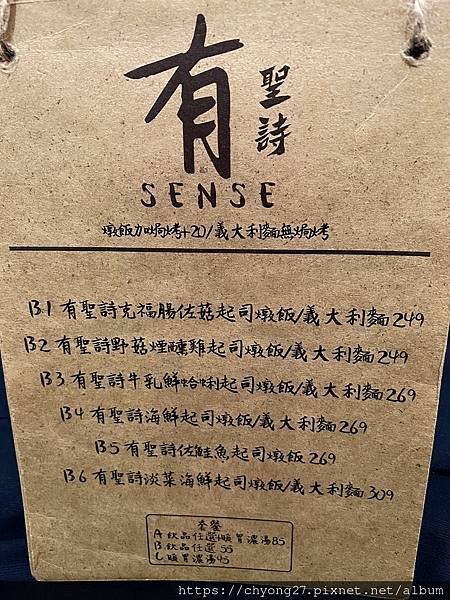 有
聖詩
SENSE
燉飯加焗烤+20/義大利麵無焗烤
B1 有聖詩克福腸佐菇起司燉飯/義大利麵249
B2 有聖詩野菇煙燻雞起司燉飯/義大利麵249
B3 有聖詩牛乳鮮蛤蜊起司燉飯/義大利麵269
B4 有聖詩海鮮起司燉飯/義大利麵269
B5 有聖詩佐鮭魚起司燉飯269
B6 有聖詩淡菜海鮮起司燉飯/義大利麵309
套餐
A 飲品任選+順胃濃湯85
B 飲品任選 55
C 順胃濃湯45
https://chyong27.pixnet.net/album